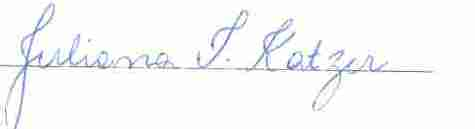 Juliana T. Katzer